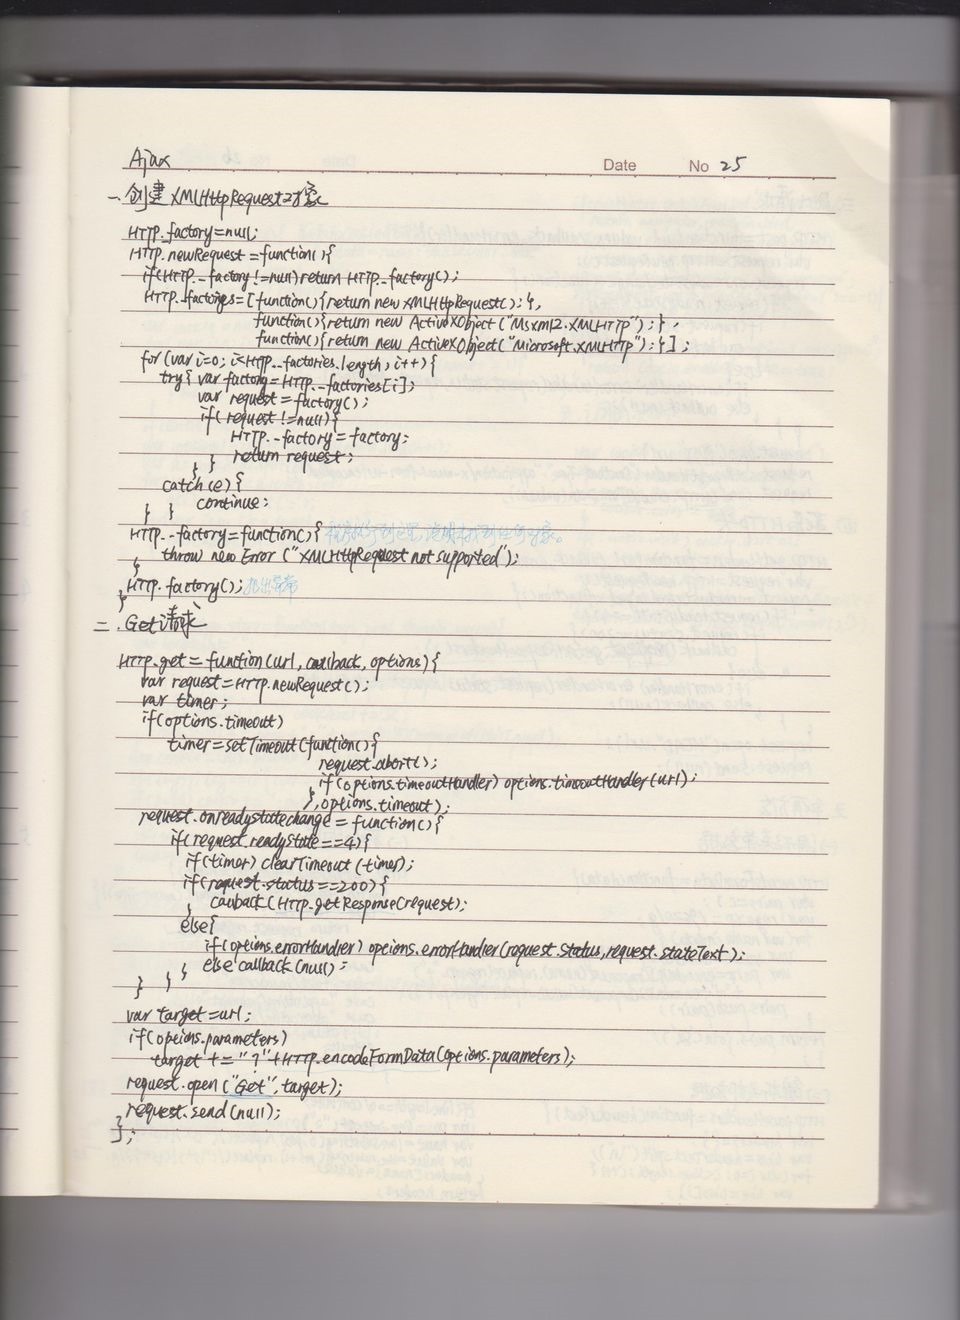 Ajax Date No 25
一. 创建XMLHttpRequest对象
HTTP._factory=null;
HTTP.newRequest=function(){
if(HTTP._factory!=null)return HTTP._factory();
HTTP._factories=[function(){return new XMLHttpRequest();},
function(){return new ActiveXObject("Msxml2.XMLHTTP");},
function(){return new ActiveXObject("Microsoft.XMLHTTP");}];
for(var i=0; i<HTTP._factories.length; i++){
try{ var factory=HTTP._factories[i];
var request=factory();
if(request!=null){
HTTP._factory=factory;
return request;
} }
catch(e){
continue;
} }
HTTP._factory=function(){ 程序执行到这里,
throw new Error("XMLHttpRequest not supported");
}
HTTP._factory(); 抛出异常
}
二. Get请求
HTTP.get=function(url, callback, options){
var request=HTTP.newRequest();
var timer;
if(options.timeout)
timer=setTimeout(function(){
request.abort();
if(options.timeoutHandler) options.timeoutHandler(url);
},options.timeout);
request.onreadystatechange=function(){
if(request.readyState==4){
if(timer) clearTimeout(timer);
if(request.status==200){
callback(HTTP.getResponse(request);
}
else{
if(options.errorHandler) options.errorHandler(request.status,request.stateText);
else callback(null);
} } }
var target=url;
if(options.parameters)
target+="?"+HTTP.encodeFormData(options.parameters);
request.open("Get",target);
request.send(null);
};